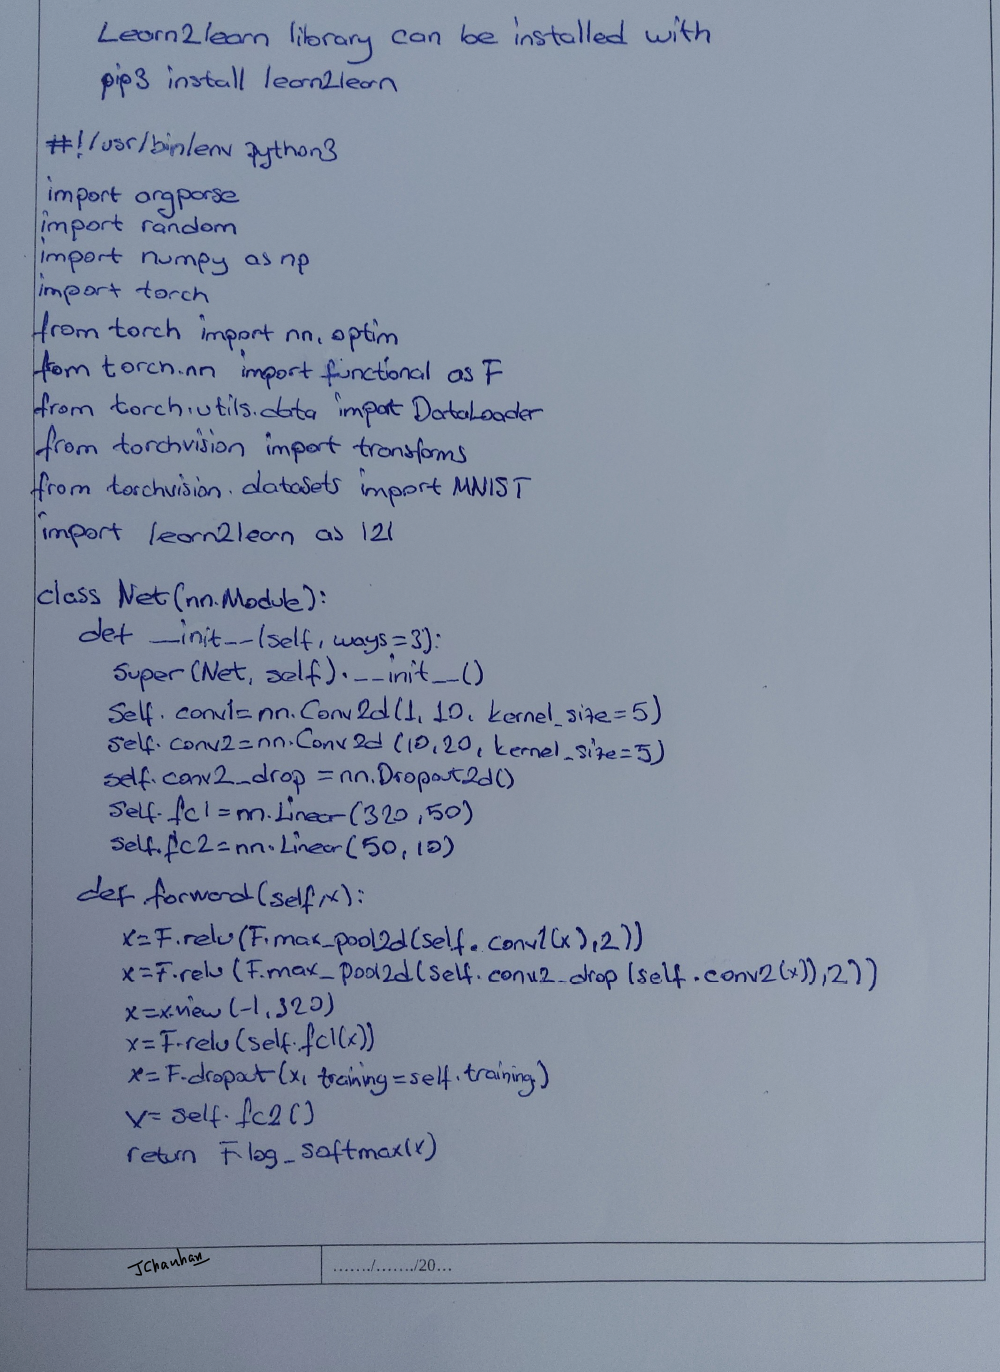 Learn2learn library can be installed with
pip3 install learn2learn
#!/usr/bin/env python3
import argparse
import random
import numpy as np
import torch
from torch import nn, optim
from torch.nn import functional as F
from torch.utils.data import DataLoader
from torchvision import transforms
from torchvision.datasets import MNIST
import learn2learn as l2l
class Net(nn.Module):
def __init__(self, ways=3):
super(Net, self).__init__()
self.conv1=nn.Conv2d(1, 10, kernel_size=5)
self.conv2=nn.Conv2d(10,20, kernel_size=5)
self.conv2_drop=nn.Dropout2d()
self.fc1=nn.Linear(320,50)
self.fc2=nn.Linear(50,10)
def forward(self,x):
x=F.relu(F.max_pool2d(self.conv1(x),2))
x=F.relu(F.max_pool2d(self.conv2_drop(self.conv2(x)),2))
x=x.view(-1,320)
x=F.relu(self.fc1(x))
x=F.dropout(x, training=self.training)
x=self.fc2()
return F log_softmax(x)
JChauhan
......./......./20...